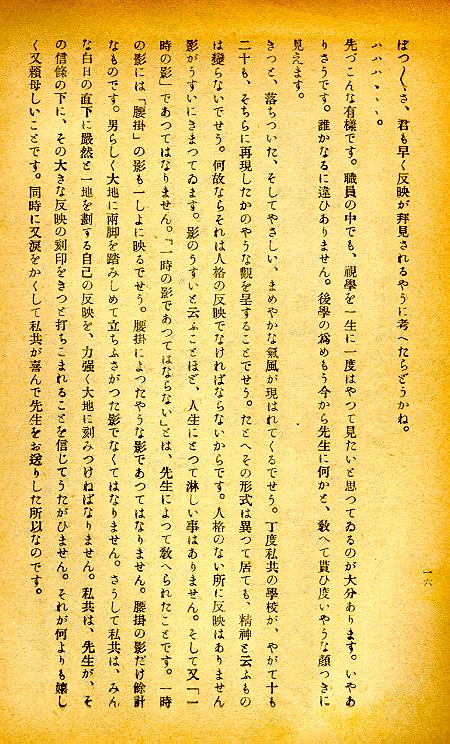 ぽつ〳〵さ、君も早く反映が拜見されるやうに考へたらどうかね。
ハハハ、、、。
先づこんな有樣です。職員の中でも、視學を一生に一度はやつて見たいと思つてゐるのが大分あります。いやあ
りさうです。誰かなるに違ひありません。後學の爲めもう今から先生に何かと、敎へて貰ひ度いやうな顏つきに
見えます。
きつと、落ちついた、そしてやさしい、まめやかな氣風が現はれてくるでせう。丁度私共の學校が、やがて十も
二十も、そちらに再現したかのやうな觀を呈することでせう。たとへその形式は異つて居ても、精神と云ふもの
は變らないでせう。何故ならそれは人格の反映でなければならないからです。人格のない所に反映はありません
影がうすいにきまつてゐます。影のうすいと云ふことほど、人生にとつて淋しい事はありません。そして又「一
時の影」であつてはなりません。「一時の影であつてはならない」とは、先生によつて敎へられたことです。一時
の影には「腰掛」の影も一しよに映るでせう。腰掛によつたやうな影であつてはなりません。腰掛の影だけ餘計
なものです。男らしく大地に兩脚を踏みしめて立ちふさがつた影でなくてはなりません。さうして私共は、みん
な白日の直下に嚴然と一地を劃する自己の反映を、力强く大地に刻みつけねばなりません。私共は、先生が、そ
の信條の下に、その大きな反映の刻印をきつと打ちこまれることを信じてうたがひません。それが何よりも嬉し
く又賴母しいことです。同時に又淚をかくして私共が喜んで先生をお送りした所以なのです。
一六